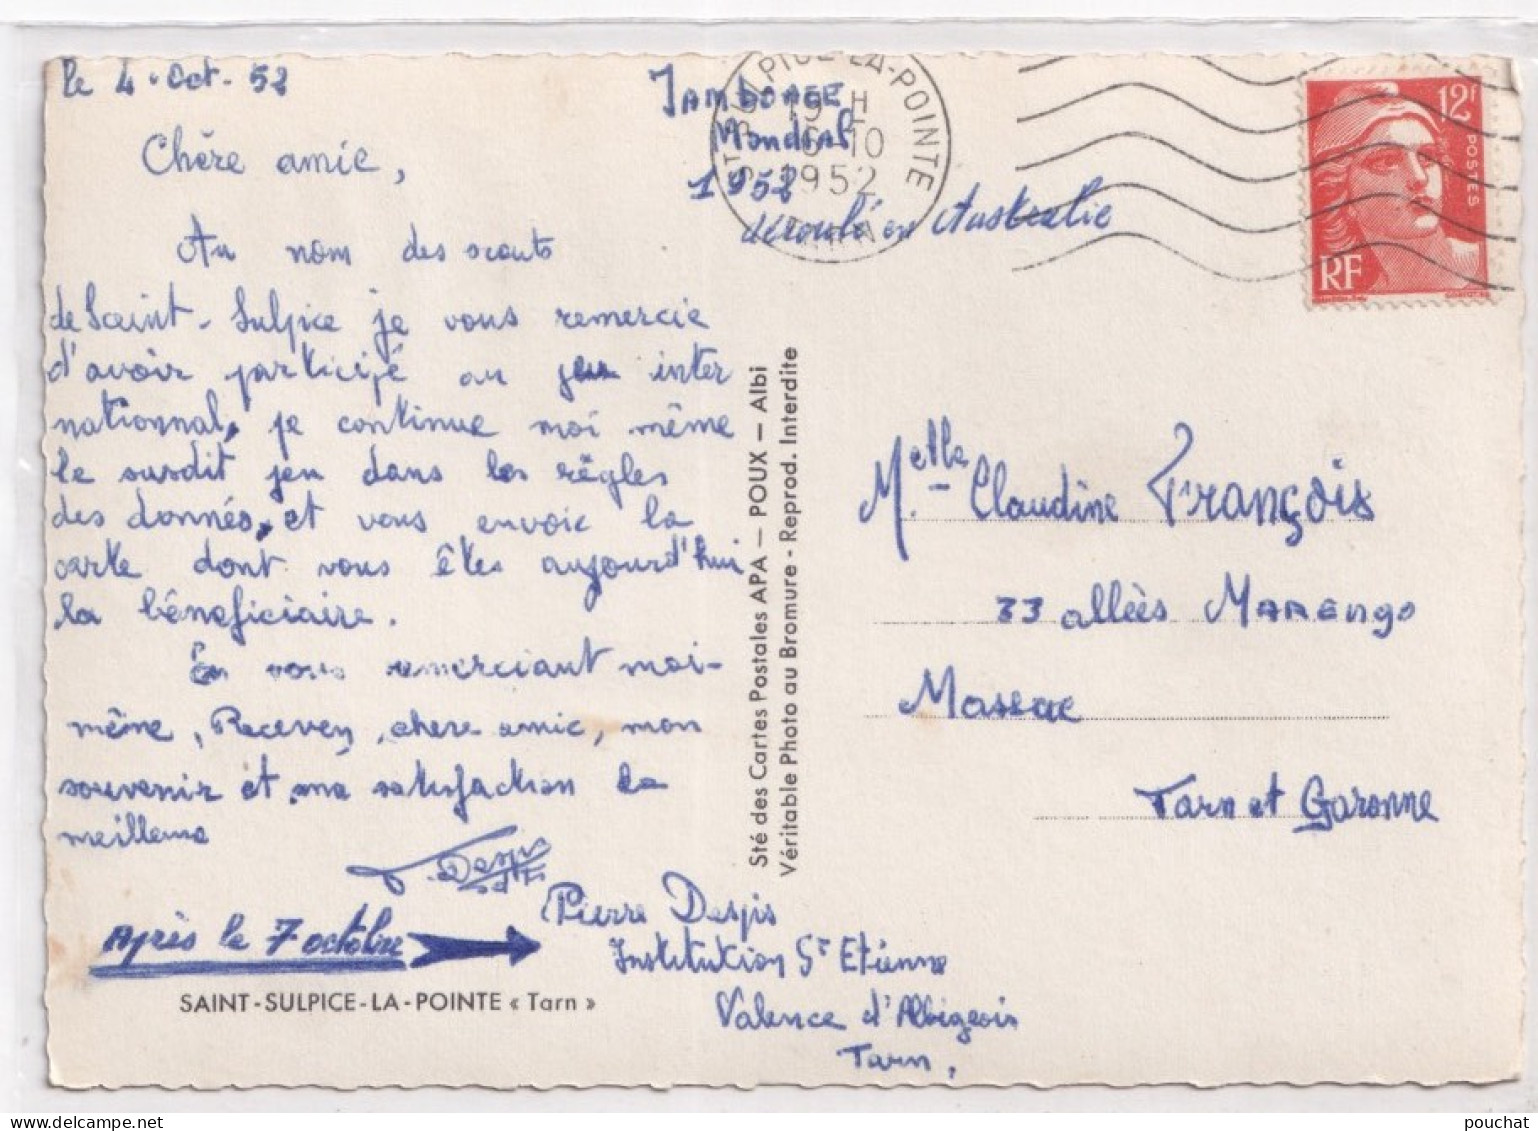 le 4. Oct. 52
Chère amie,
Au nom des scouts
de Saint-Sulpice je vous remercie
d'avoir participé au jeu inter
nationnal, je continue moi même
le susdit jeu dans les règles
des donnés, et vous envoie la
carte dont vous êtes aujourd'hui
la bénéficiaire.
En vous remerciant moi-
même, Recevez, chere amie, mon
souvenir et ma satisfaction la
meilleure
Despis
Après le 7 octobre
Pierre Despis
Institution St Etienne
Valence d'Albigeois
Tarn,
SAINT-SULPICE-LA-POINTE « Tarn »
Jamboree
Mondial
1952
déroulé en Australie
ST SULPICE-LA-POINTE
19 H
6-10
1952
TARN
12F
POSTES
RF
Sté des Cartes Postales APA — POUX — Albi
Véritable Photo au Bromure - Reprod. Interdite
Melle Claudine François
33 allèes Marengo
Massac
Tarn et Garonne
pouchat